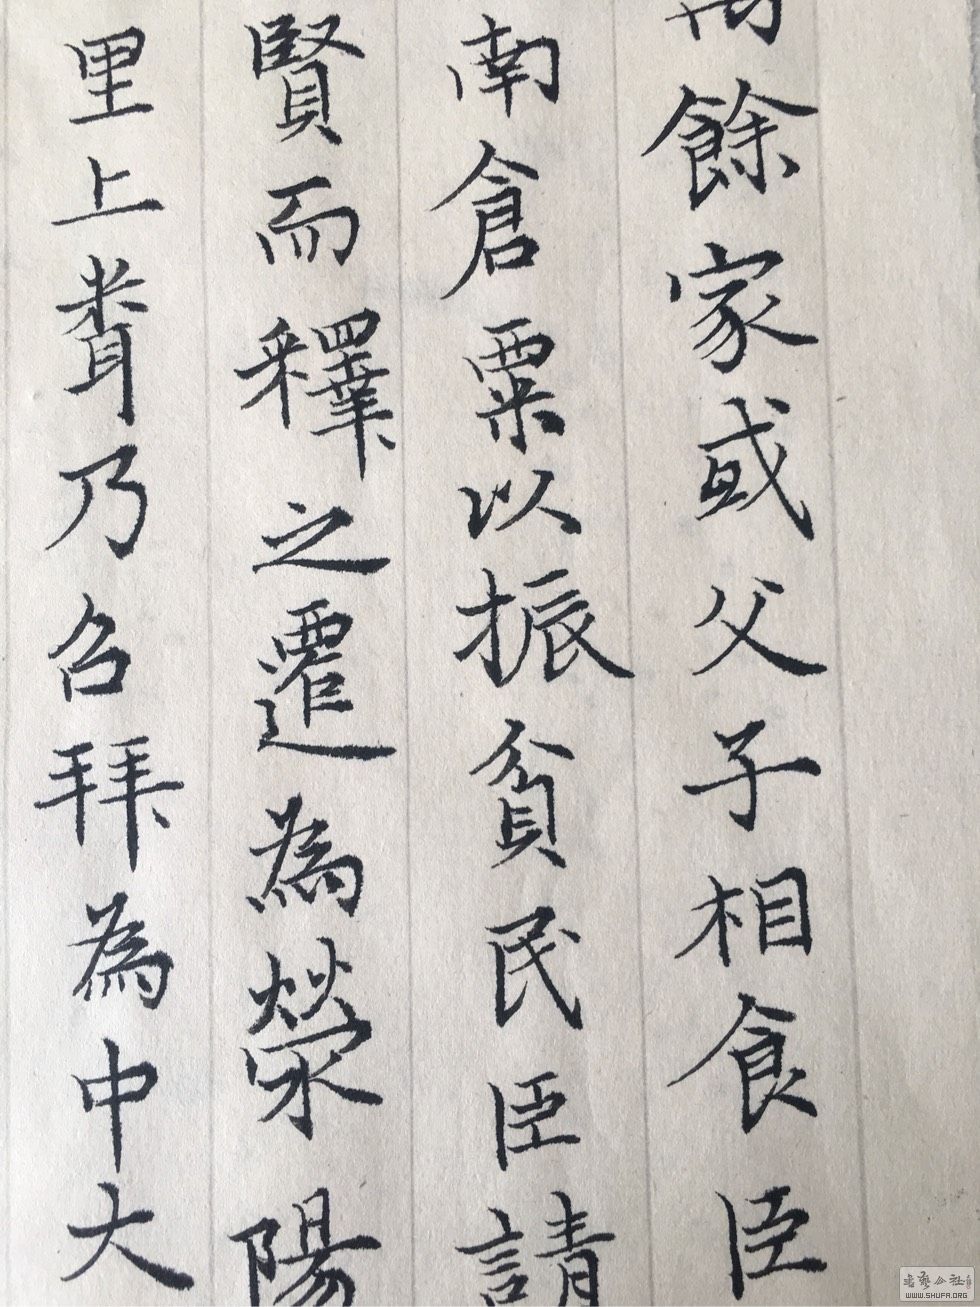 萬餘家或父子相食臣
南倉粟以振貧民臣請
賢而釋之遷為滎陽
里上聞乃召拜為中大
書藝公社
WWW.SHUFA.ORG